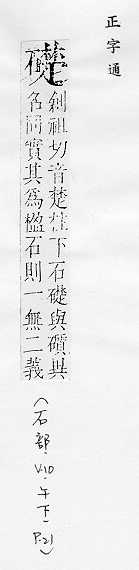 正字通
礎
創祖切音楚柱下石礎與礩異
名同實其為楹石則一無二義
(石部,V.10,午下,P.21)